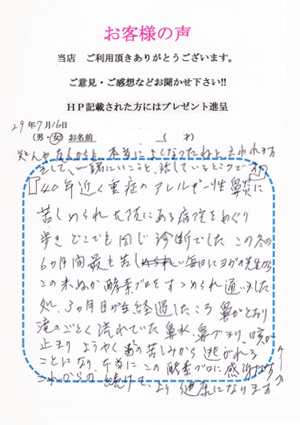 お客様の声
当店 ご利用頂きありがとうございます。
ご意見・ご感想などお聞かせ下さい!!
HP記載された方にはプレゼント進呈
29年7月16日
(男・女) お名前 ( 才)
知人や友人からも 本当によくなったねと云われます
「40年近く重症のアレルギー性鼻炎に
苦しめられ大阪にある病院をめぐり
歩き どこでも同じ診断でした この冬の
6ヶ月間最も苦しい毎日にヨガの先生から
この米ぬか酵素ブロをすすめられ通いました
処、3ヶ月目が経過したころ鼻がとおり
滝のごとく流れていた鼻水、鼻づまり、咳が
止まり ようやく 苦しみから逃がれる
ことになり、本当にこの酵素ブロに感謝
これからも続けて、より健康になります